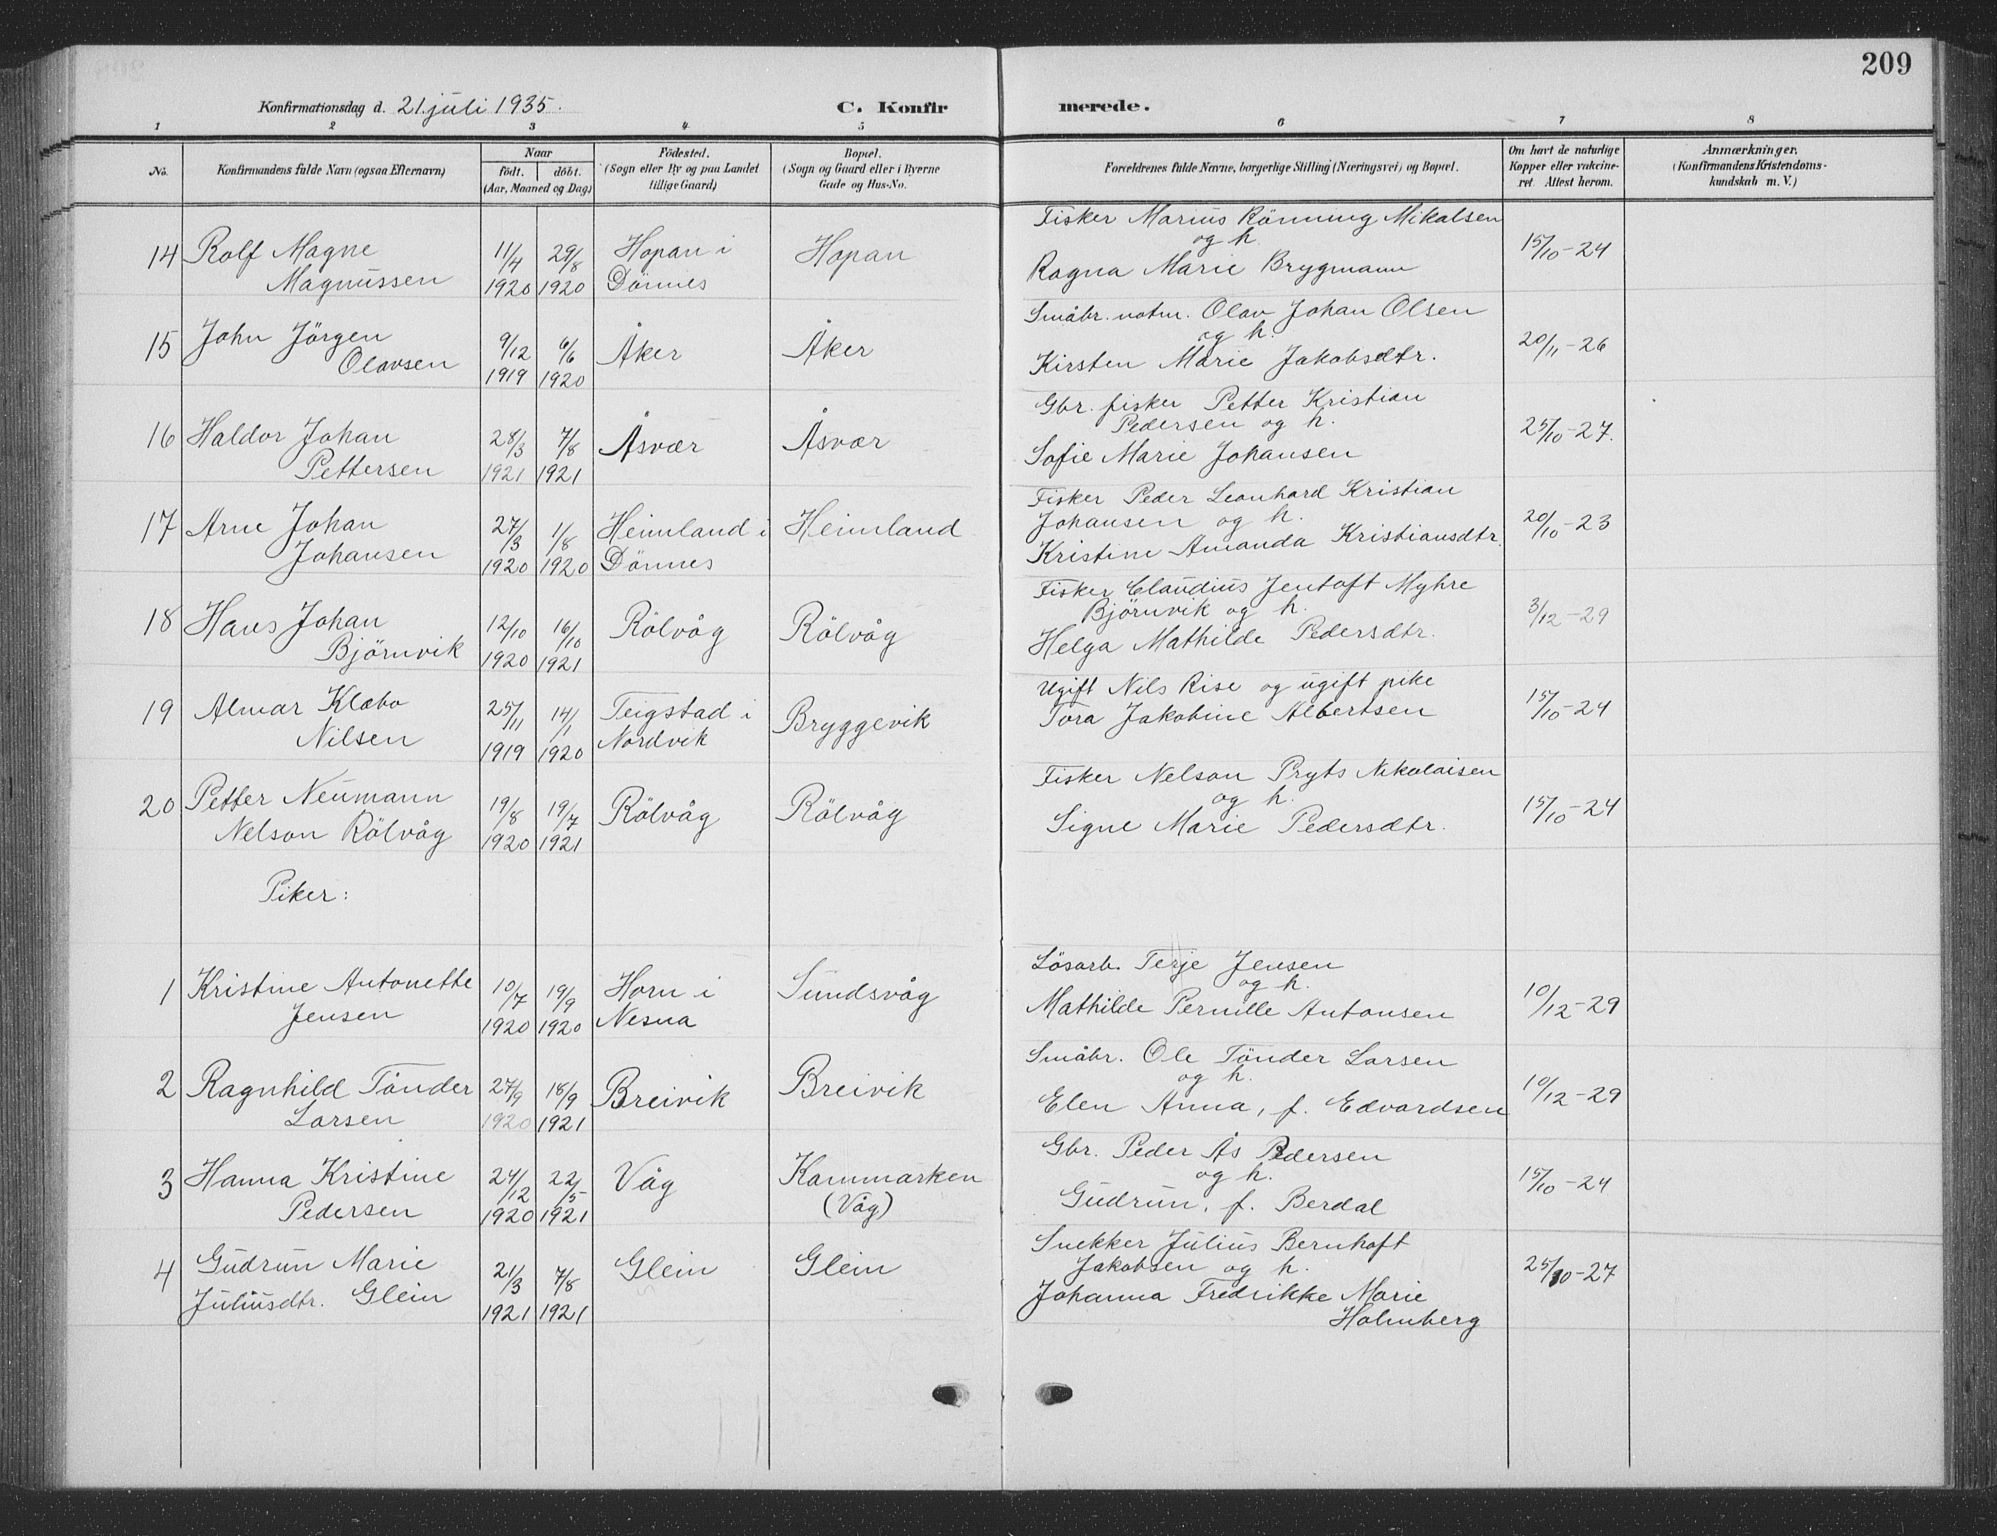 209
Konfirmationsdag d. 21. juli 1935. C. Konfirmerede.
1 2 3 4 5 6 7 8
No. Konfirmandens fulde Navn (ogsaa Efternavn)
Naar
födt. döbt.
(Aar, Maaned og Dag)
Födested.
(Sogn eller By og paa Landet
tillige Gaard)
Bopæl.
(Sogn og Gaard eller i Byerne
Gade og Hus-No.
Forældrenes fulde Navne, borgerlige Stilling (Næringsvei) og Bopæl.
Om havt de naturlige
Kopper eller vakcine-
ret. Attest herom.
Anmærkninger.
(Konfirmandens Kristendoms-
kundskab m. V.)
14 Rolf Magne
Magnussen
11/4 1920
29/8 1920
Hopan i
Dönnes
Hopan
Fisker Marius Rönning Mikalsen
og h.
Ragna Marie Brygmann
15/10-24
15 John Jörgen
Olavsen
9/12 1919
6/6 1920
Åker
Åker
Småbr. notm. Olav Johan Olsen
og h.
Kirsten Marie Jakobsdtr.
20/11-26
16 Haldor Johan
Pettersen
28/3 1921
7/8 1921
Åsvær
Åsvær
Gbr. fisker Petter Kristian
Pedersen og h.
Sofie Marie Johansen
25/10-27.
17 Arne Johan
Johansen
27/3 1920
1/8 1920
Heimland i
Dönnes
Heimland
Fisker Peder Leonhard Kristian
Johansen og h.
Kristine Amanda Kristiansdtr.
20/10-23
18 Hans Johan
Björnvik
12/10 1920
16/10 1921
Rölvåg
Rölvåg
Fisker Claudius Jentoft Myhre
Björnvik og h.
Helga Mathilde Pedersdtr.
3/12-29
19 Almar Klæbo
Nilsen
25/11 1919
14/1 1920
Teigstad i
Nordvik
Bryggevik
Ugift Nils Rise og ugift pike
Tora Jakobine Albertsen
15/10-24
20 Petter Neumann
Nelson Rölvåg
19/8 1920
19/7 1921
Rölvåg
Rölvåg
Fisker Nelson Pryts Nikolaisen
og h.
Signe Marie Pedersdtr.
15/10-24
Piker:
1 Kristine Antonette
Jensen
10/7 1920
19/9 1920
Horn i
Nesna
Sundsvåg
Lösarb. Terje Jensen
og h.
Mathilde Pernille Antonsen
10/12-29
2 Ragnhild Tönder
Larsen
27/9 1920
18/9 1921
Breivik
Breivik
Småbr. Ole Tönder Larsen
og h.
Elen Anna, f. Edvardsen
10/12-29
3 Hanna Kristine
Pedersen
24/12 1920
22/5 1921
Våg
Kammarken
(Våg)
Gbr. Peder Ås Pedersen
og h.
Gudrun, f. Berdal
15/10-24
4 Gudrun Marie
Juliusdtr. Glein
21/3 1921
7/8 1921
Glein
Glein
Snekker Julius Bernhoft
Jakobsen og h.
Johanna Fredrikke Marie
Holmberg
25/10-27